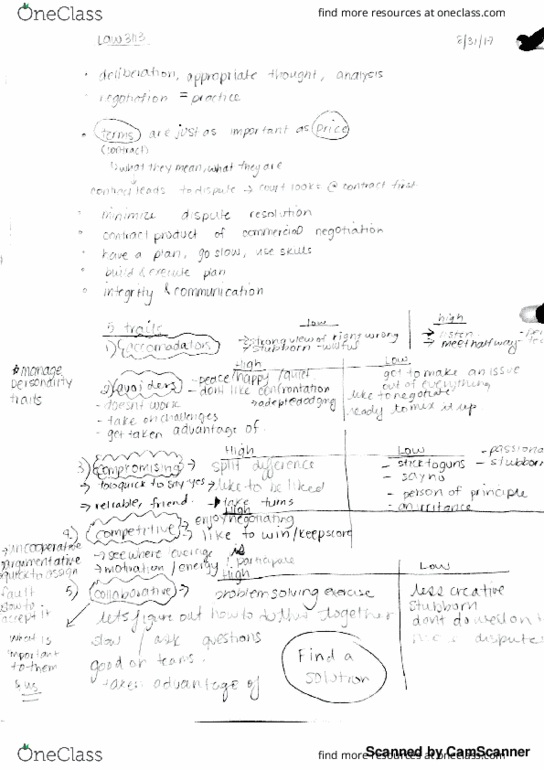 OneClass
find more resources at oneclass.com
Law 3113
8/31/17
deliberation, appropriate thought, analysis
negotiation = practice
terms are just as important as price
(contract)
what they mean, what they are
contract leads to dispute → court looks @ contract first
minimize dispute resolution
contract product of commercial negotiation
have a plan, go slow, use skills
build & execute plan
integrity & communication
5 traits
low
high
1) accomodators
→ strong view of right wrong
→ stubborn - willful
→ listen
→ meet half way
* manage personality traits
High
Low
2) avoiders
- peace/happy/quiet
- dont like confrontation
- doesnt work
- take on challenges
- get taken advantage of
get to make an issue
out of everything
like to negotiate
ready to mix it up
High
Low
3) compromising → split difference
→ too quick to say yes → like to be liked
→ reliable, friend. → take turns
- stick to guns
- say no
- person of principle
- stubborn
High
4) competitive → enjoy negotiating
→ like to win/keep score
→ motivation / energy / participate
- uncooperative
argumentative
quick to assign
fault
slow to
accept it
what is
important
to them
& us
High
Low
5) collaborative → problem solving exercise
lets figure out how to together
slow / ask questions
good on teams.
taken advantage of
less creative
stubborn
dont do well on
disputes
Find a
solution
OneClass
find more resources at oneclass.com
Scanned by CamScanner